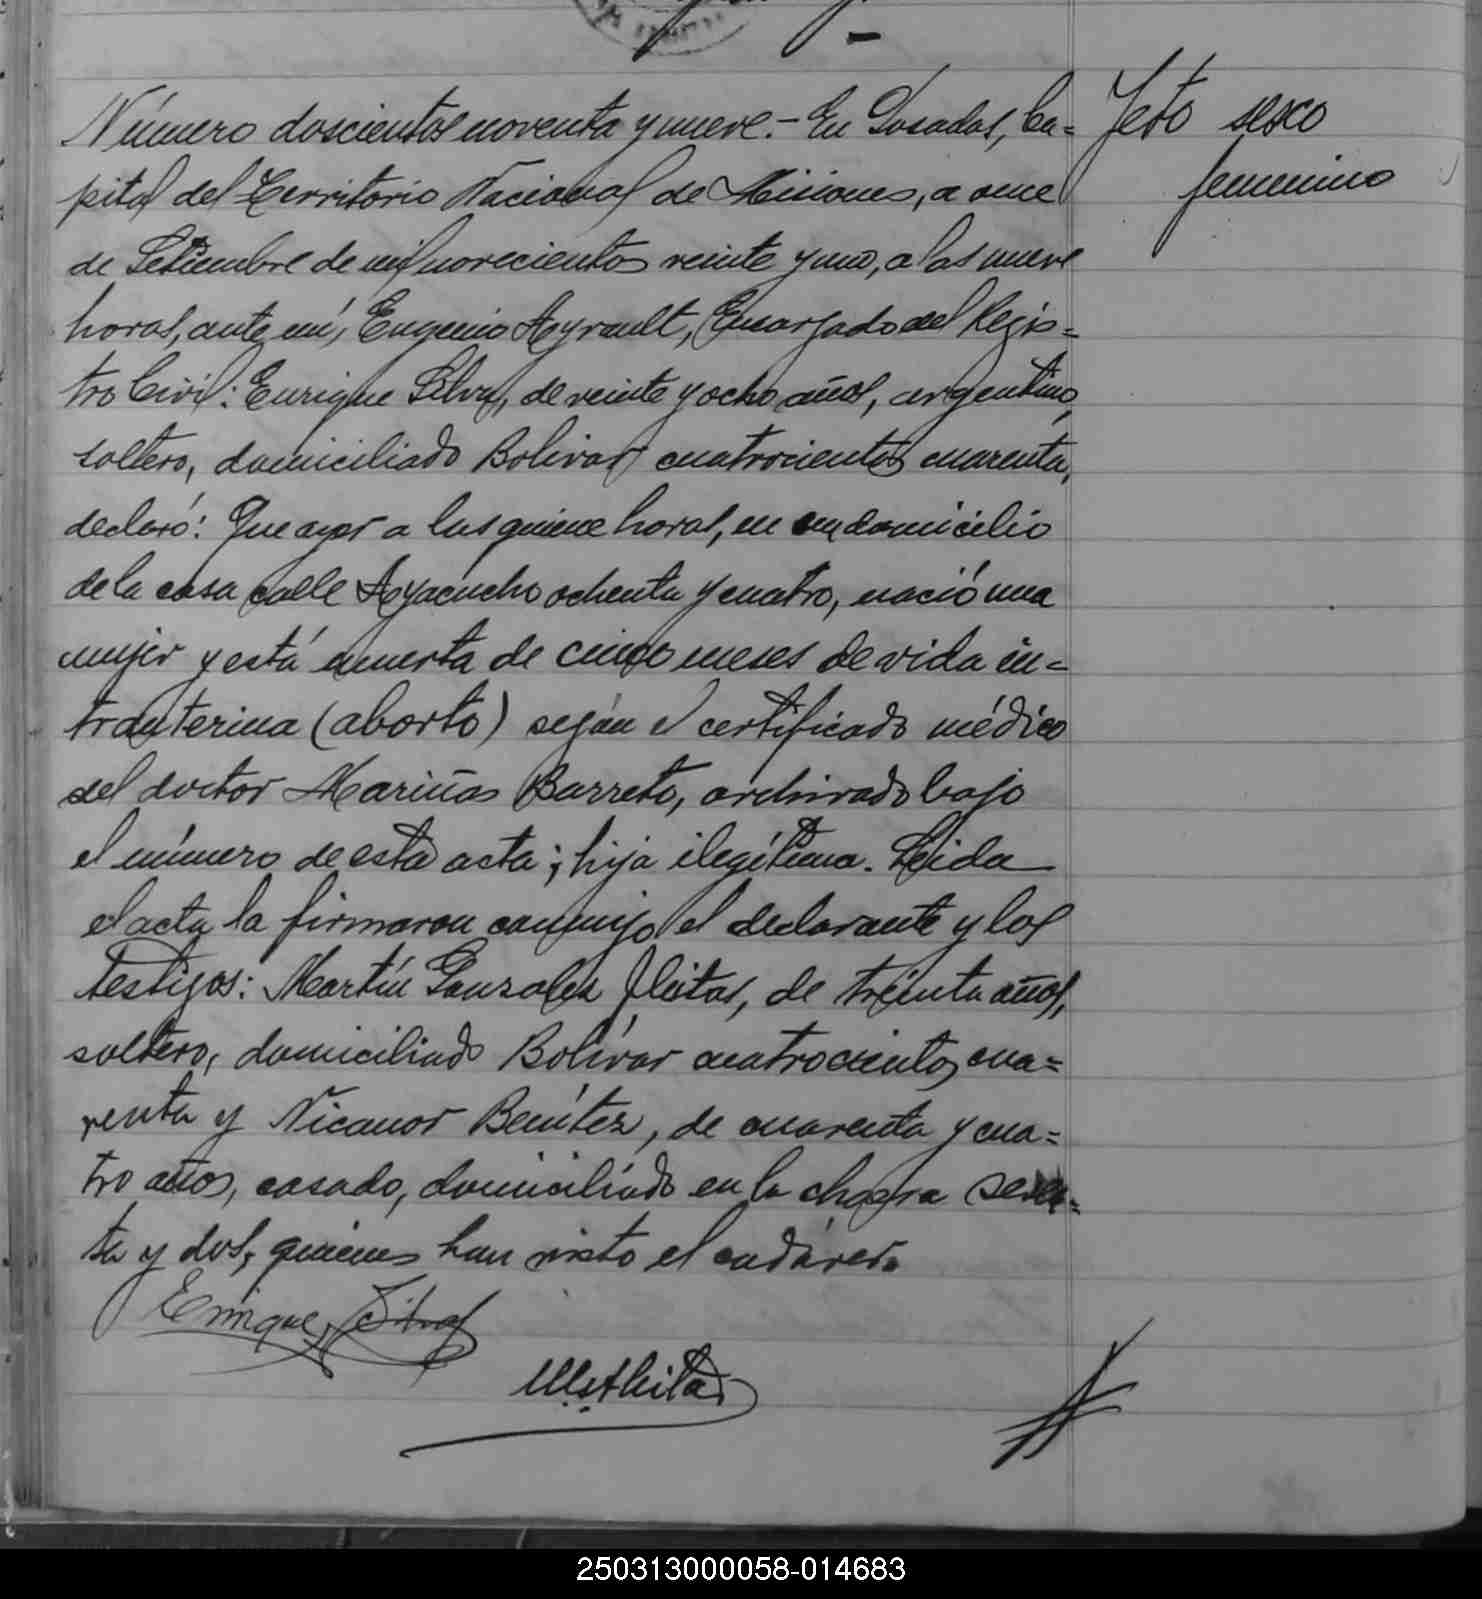 Número doscientos noventa y nueve.- En Posadas, Ca=
pital del Territorio Nacional de Misiones, a once
de Setiembre de mil novecientos veinte y uno, a las nueve
horas, ante mí, Eugenio Ayrault, Encargado del Regis=
tro Civil: Enrique Silva, de veinte y ocho años, argentino,
soltero, domiciliado Bolívar cuatrocientos cuarenta,
declaró: Que ayer a las quince horas, en domicilio
de la casa calle Ayacucho ochenta y cuatro, nació una
mujer y está muerta de cinco meses de vida in=
trauterina (aborto) según el certificado médico
del doctor Mariñas Barreto, archivado bajo
el número de esta acta; hija ilegítima. Leida
el acta la firmaron conmigo el declarante y los
testigos: Martín Gonzalez Fleitas, de treinta años,
soltero, domiciliado Bolívar cuatrocientos cua=
renta y Nicanor Benítez, de cuarenta y cua=
tro años, casado, domiciliado en la chacra sesen=
ta y dos, quienes han visto el cadáver.
Enrique Silva
Feto sexo
femenino
250313000058-014683